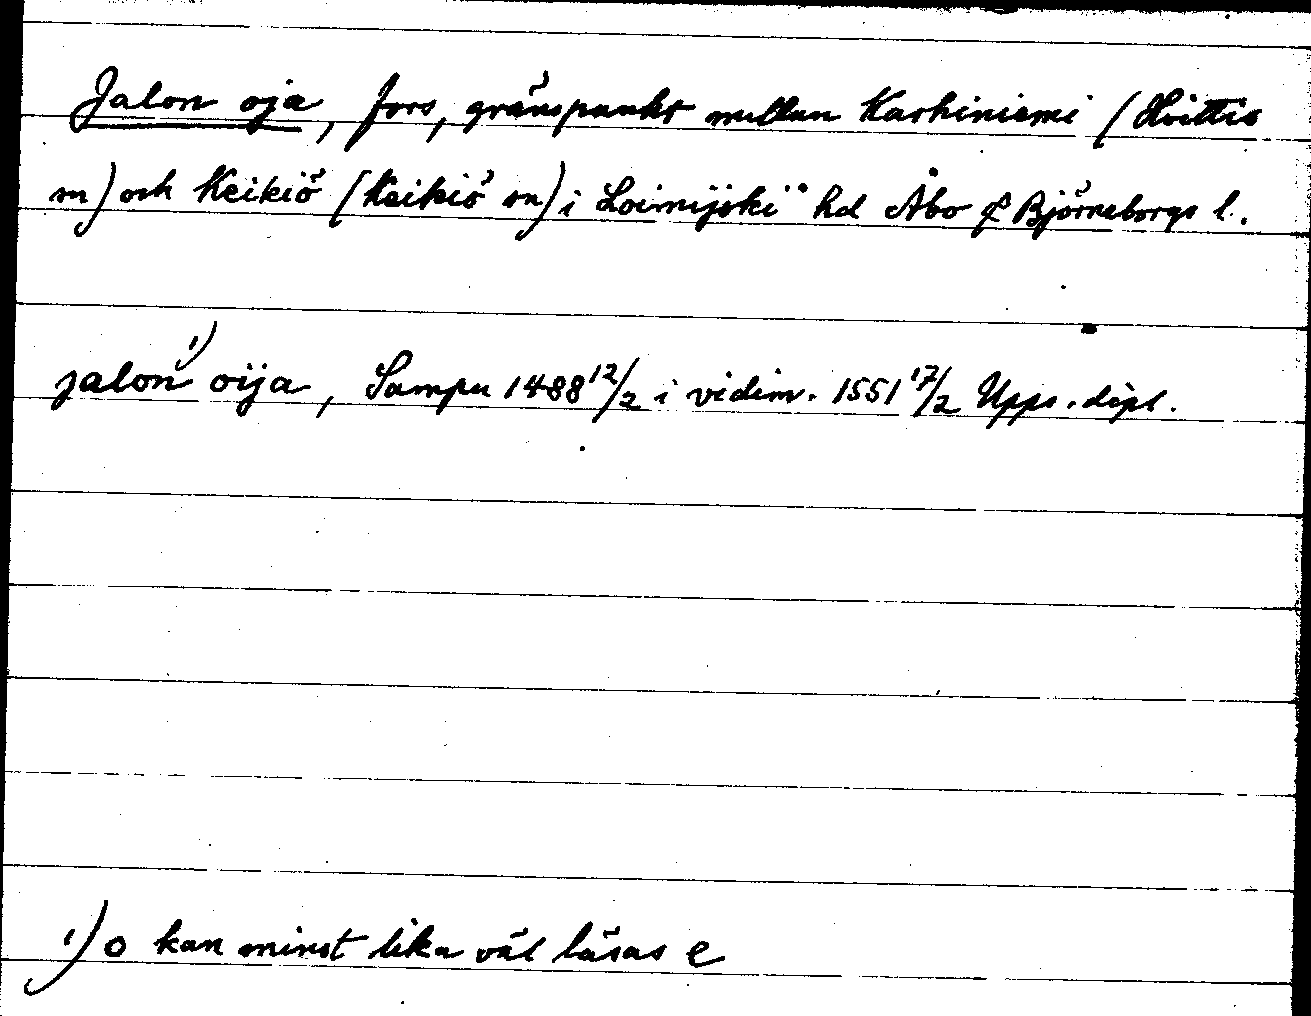 Jalon oja, fors, gränspunkt mellan Karhiniemi (Hvittis
sn) och Keikiö (Keikiö sn) i Loimijoki hd Åbo & Björneborgs l.
jalon¹⁾ oija, Sampu 1488 12/2 i vidim. 1551 17/2 Upps. dipl.
¹⁾ o kan minst lika väl läsas e